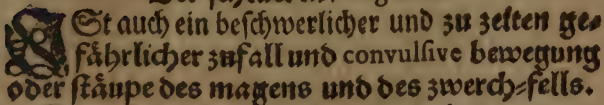 ISt auch ein beschwerlicher und zu zeiten ge-
fährlicher zufall und convulsive bewegung
oder stäupe des magens und des zwerch-fells.